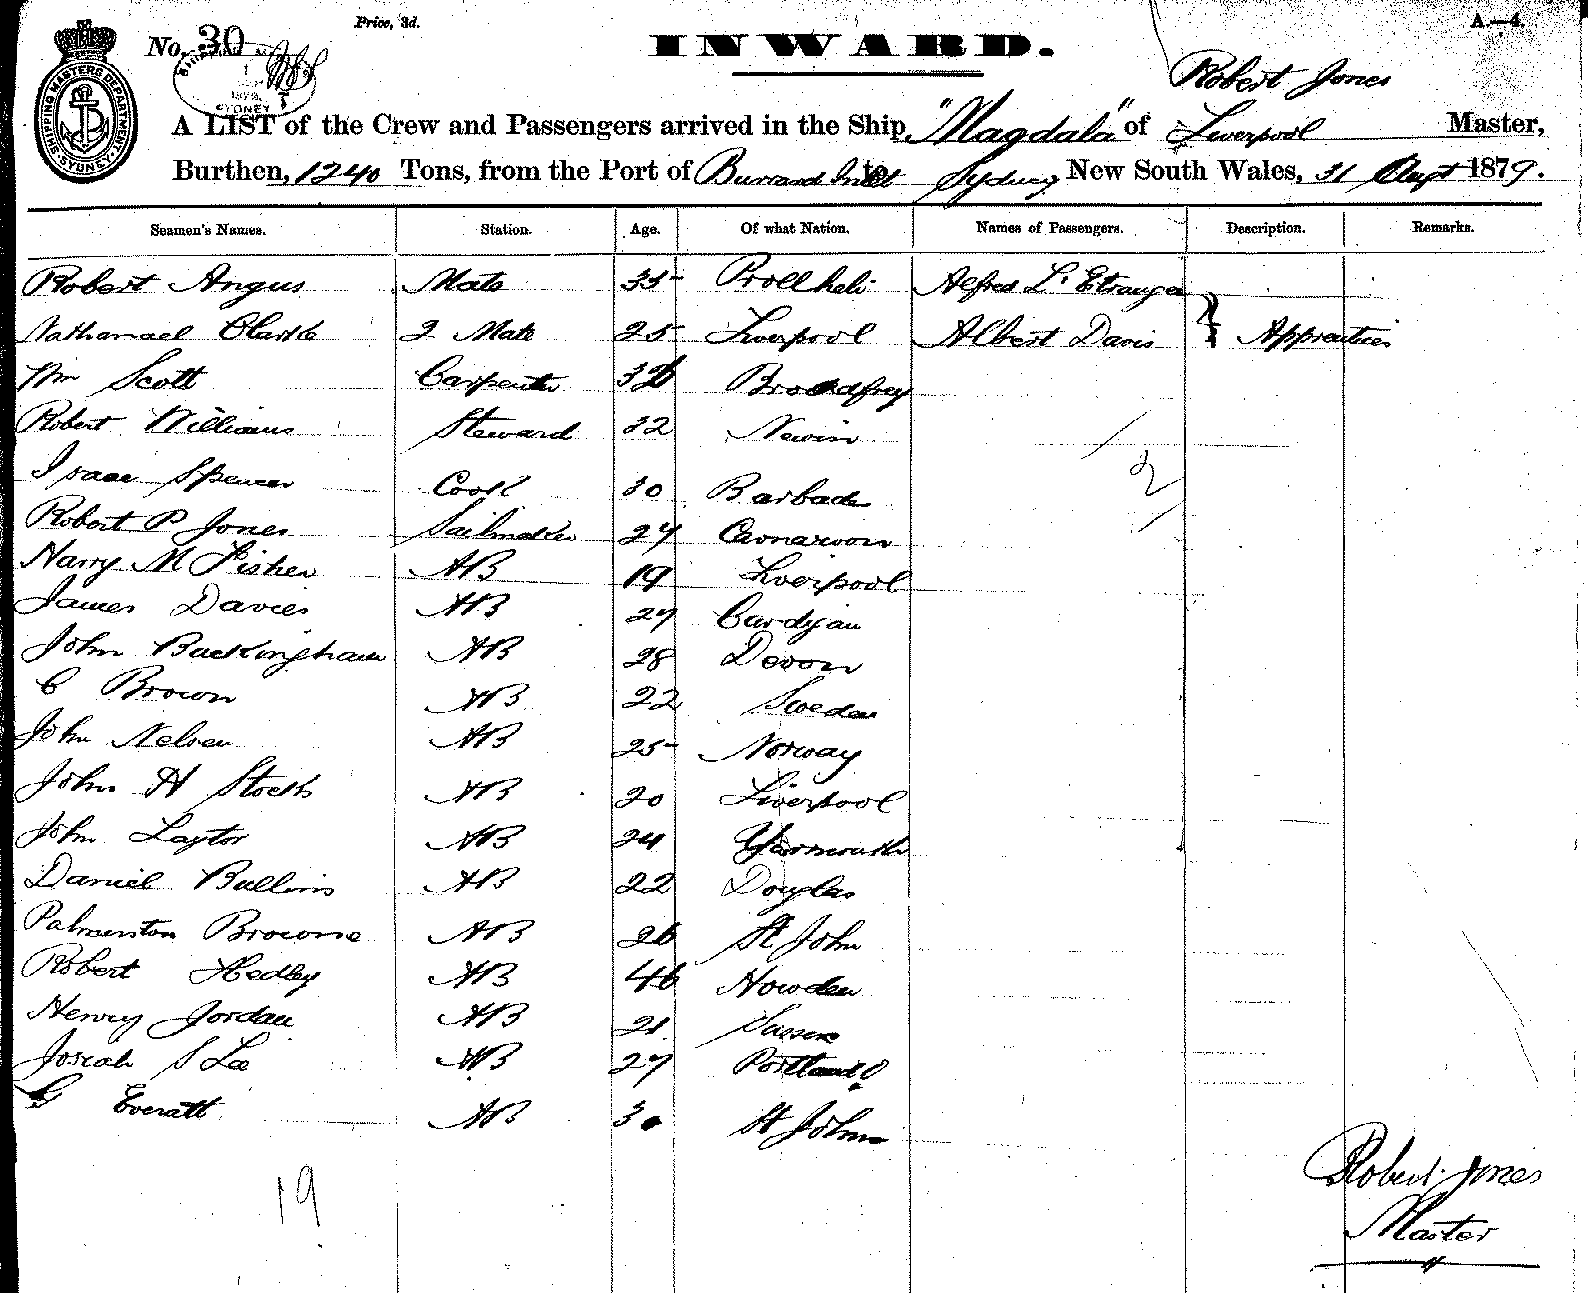 Price, 3d.
A.—4.
No. 30
SHIPPING MASTERS DEPARTMENT SYDNEY
SYDNEY
INWARD.
Robert Jones
A LIST of the Crew and Passengers arrived in the Ship "Magdala" of Liverpool Master,
Burthen, 1240 Tons, from the Port of Burrard Inlet to Sydney New South Wales, 31 Augt 1879.
Seamen's Names. Station. Age. Of what Nation. Names of Passengers. Description. Remarks.
Robert Angus Mate 35 Pwllheli Alfred L'Etranger
Nathanael Clarke 2 Mate 25 Liverpool Albert Davis } Apprentices
Wm Scott Carpenter
Robert Williams Steward 32 Newin
Isaac Spencer Cook 30 Barbad
2
Robert P Jones Sailmaker 27 Carnarvon
Harry M Fisher AB 19 Liverpool
James Davies AB 27 Cardigan
John Buckingham AB 28 Devon
C Brown AB 22 Sweden
John Nelsen AB 25 Norway
John H Stock AB 20 Liverpool
John Laytor AB 24 Yarmouth
Daniel Bullin AB 22 Douglas
Palmerston Browne AB 26 St John
Robert Hedley AB 46 Howden
Henry Jordan AB 21 Sussex
Josiah S Lee AB 27 Portland
G Everatt AB 30 St Johns
19
Robert Jones
Master